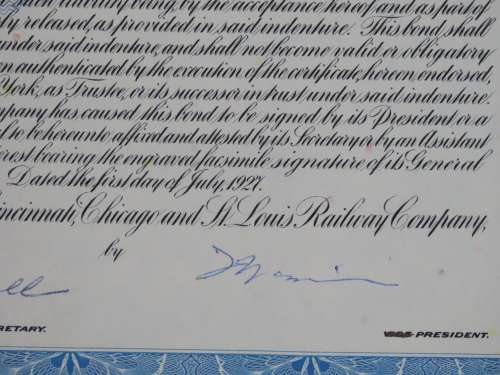 such liability being, by the acceptance hereof and as part of
ly released as provided in said indenture. This bond shall
under said indenture, and shall not become valid or obligatory
en authenticated by the execution of the certificate, hereon endorsed,
York, as Trustee, or its successor in trust under said indenture.
ompany has caused this bond to be signed by its President or a
l to be hereunto affixed and attested by its Secretary or by an Assistant
erest bearing the engraved facsimile signature of its General
Dated the first day of July, 1927.
incinnati, Chicago and St. Louis Railway Company,
by
RETARY.
PRESIDENT.